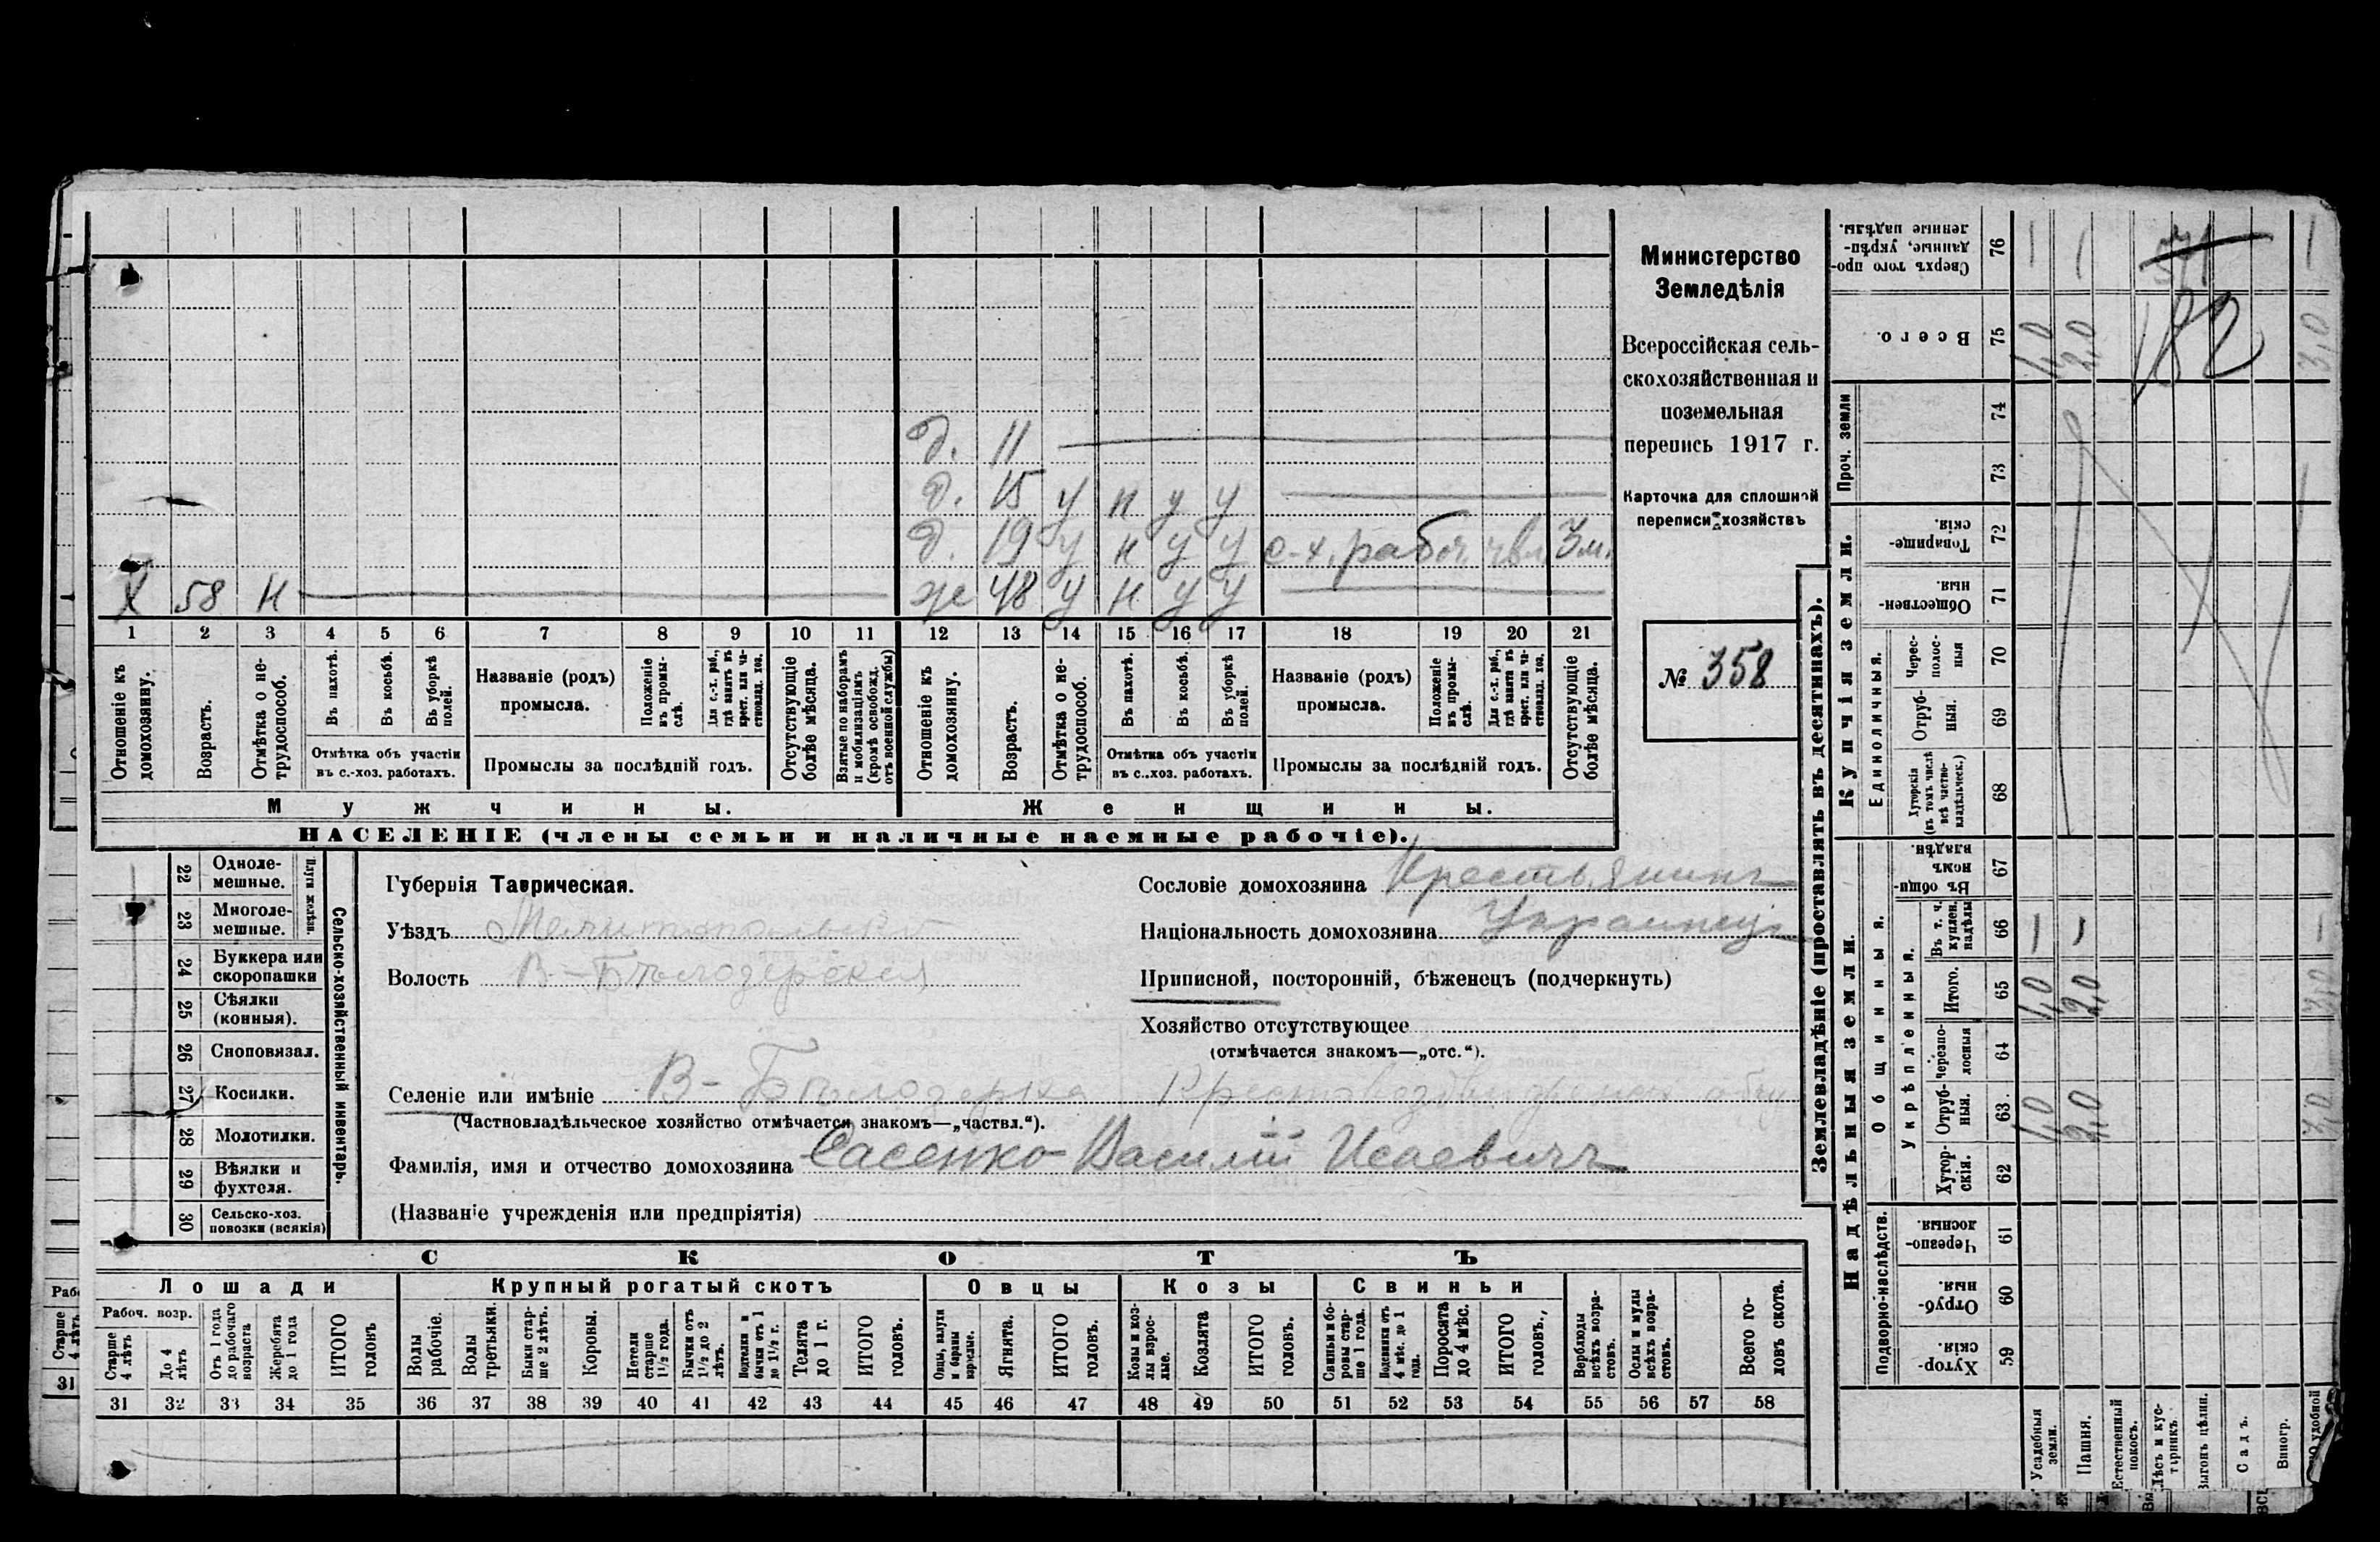 д. 11
д. 15 у н у у
д. 19 у н у у с-х. рабоч. 3 м.
Х 58 н ж 48 у н у у
1 2 3 4 5 6 7 8 9 10 11 12 13 14 15 16 17 18 19 20 21
Отношеніе къ домохозяину.
Возрастъ.
Отмѣтка о не-трудоспособ.
Въ пахотѣ.
Въ косьбѣ.
Въ уборкѣ полей.
Отмѣтка объ участіи въ с.-хоз. работахъ.
Названіе (родъ) промысла.
Положеніе въ промы-слѣ.
Для с.-х. раб., гдѣ занятъ въ крест. или ча-стновлад. хоз.
Промыслы за послѣдній годъ.
Отсутствующіе болѣе мѣсяца.
Взятые по наборамъ и мобилизаціямъ (кромѣ освобожд. отъ военной службы)
Отношеніе къ домохозяину.
Возрастъ.
Отмѣтка о не-трудоспособ.
Въ пахотѣ.
Въ косьбѣ.
Въ уборкѣ полей.
Отмѣтка объ участіи въ с..хоз. работахъ.
Названіе (родъ) промысла.
Положеніе въ промы-слѣ.
Для с.-х. раб., гдѣ занята въ крест. или ча-стновлад. хоз.
Промыслы за послѣдній годъ.
Отсутствующіе болѣе мѣсяца.
Мужчины. Женщины.
НАСЕЛЕНІЕ (члены семьи и наличные наемные рабочіе).
Министерство
Земледѣлія
Всероссійская сель-
скохозяйственная и
поземельная
перепись 1917 г.
Карточка для сплошной
переписи хозяйствъ
№ 358
22 Одноле-мешные.
23 Многоле-мешные.
Плуги желѣзн.
24 Буккера или скоропашки
25 Сѣялки (конныя).
26 Сноповязал.
27 Косилки.
28 Молотилки.
29 Вѣялки и фухтеля.
30 Сельско-хоз. повозки (всякія)
Сельско-хозяйственный инвентарь.
Губернія Таврическая.
Уѣздъ Мелитопольскій
Волость В-Бѣлозерская
Сословіе домохозяина Крестьянинъ
Національность домохозяина Украинецъ
Приписной, посторонній, бѣженецъ (подчеркнуть)
Хозяйство отсутствующее
(отмѣчается знакомъ—„отс.“).
Селеніе или имѣніе В-Бѣлозерка Крестовоздвиженск. общ
(Частновладѣльческое хозяйство отмѣчается знакомъ—„частвл.“).
Фамилія, имя и отчество домохозяина Сасенко Василій Исаевичъ
(Названіе учрежденія или предпріятія)
СКОТЪ
Лошади Крупный рогатый скотъ Овцы Козы Свиньи
Рабоч. возр.
Старше 4 лѣтъ
До 4 лѣтъ
Отъ 1 года до рабочаго возраста
Жеребята до 1 года
ИТОГО головъ
Волы рабочіе.
Волы третьяки.
Быки стар-ше 2 лѣтъ.
Коровы.
Нетели старше 1½ года.
Бычки отъ 1½ до 2 лѣтъ.
Подтелки и бычки отъ 1 до 1½ г.
Телята до 1 г.
ИТОГО головъ.
Овцы, валухи и бараны взрослые.
Ягнята.
ИТОГО головъ.
Козы и коз-лы взрос-лые.
Козлята
ИТОГО головъ.
Свиньи и бо-ровы стар-ше 1 года.
Подсвинки отъ 4 мѣс. до 1 года.
Поросята до 4 мѣс.
ИТОГО головъ.,
Верблюды всѣхъ возра-стовъ.
Ослы и мулы всѣхъ возра-стовъ.
Всего го-ловъ скота.
31 32 33 34 35 36 37 38 39 40 41 42 43 44 45 46 47 48 49 50 51 52 53 54 55 56 57 58
Землевладѣніе (проставлять въ десятинахъ).
Сверхъ того про-данные, укрѣп-ленные надѣлы. 76 1 1 571 1
Всего. 75 1,0 2,0 182 3,0
Купчія земли.
Проч. земли
74
73
Товарище-скія. 72
Обществен-ныя. 71
Единоличныя.
Черес-полос-ныя 70
Отруб-ныя. 69
Хуторскія (въ томъ числѣ всѣ частно-владѣльческ.) 68
Надѣльныя земли.
Общинныя.
Въ общи-номъ владѣн. 67
Укрѣпленныя.
Въ т. ч. куплен. надѣлы 66 1 1 1
Итого. 65 1,0 2,0 3,0
Черезпо-лосныя 64
Отруб-ныя. 63. 1,0 2,0 3,0
Хутор-скія. 62
Подворно-наслѣдств.
Черезпо-лосныя. 61
Отруб-ныя. 60
Хутор-скія. 59
Усадебныя земли.
Пашня.
Естественный покосъ.
Лѣсъ и кус-тарникъ.
Выгонъ цѣлин.
Садъ.
Виногр.
удобной
Старше 4 лѣтъ
31